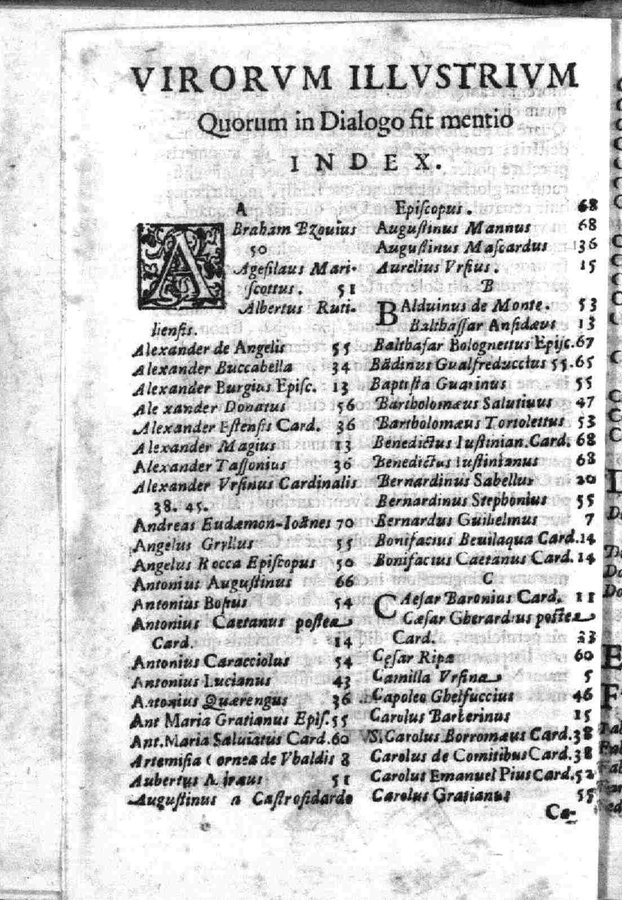 VIRORVM ILLVSTRIVM
Quorum in Dialogo fit mentio
INDEX.
A
ABraham Bzouius
50
Agesilaus Mari-
scottus. 51
Albertus Ruti-
liensis.
Alexander de Angelis 55
Alexander Buccabella 34
Alexander Burgius Episc. 13
Alexander Donatus 56
Alexander Estensis Card. 36
Alexander Magius 13
Alexander Tassonius 36
Alexander Vrsinus Cardinalis
38. 45.
Andreas Eudæmon-Ioãnes 70
Angelus Gryllus 55
Angelus Rocca Episcopus 50
Antonius Augustinus 66
Antonius Bosius 54
Antonius Caetanus postea
Card. 14
Antonius Caracciolus 54
Antonius Lucianus 43
Antonius Quærengus 36
Ant Maria Gratianus Epis. 55
Ant. Maria Saluiatus Card. 60
Artemisia Cornea de Vbaldis 8
Aubertus Miræus 51
Augustinus a Castrofidardo
Episcopus. 68
Augustinus Mannus 68
Augustinus Mascardus 136
Aurelius Vrsius. 15
B
BAlduinus de Monte. 53
Balthassar Ansidæus 13
Balthasar Bolognettus Episc. 67
Bãdinus Gualfreduccius 55. 65
Baptista Guarinus 55
Bartholomæus Salutiuus 47
Bartholomæus Tortolettus 53
Benedictus Iustinian. Card. 68
Benedictus Iustinianus 68
Bernardinus Sabellus 20
Bernardinus Stephonius 55
Bernardus Guilhelmus 7
Bonifacius Beuilaqua Card. 14
Bonifacius Caetanus Card. 14
C
CAesar Baronius Card. 11
Cæsar Gherardius postea
Card. 23
Cęsar Ripa 60
Camilla Vrsina 5
Capoleo Ghelfuccius 46
Carolus Barberinus 15
S. Carolus Borromæus Card. 38
Carolus de Comitibus Card. 38
Carolus Emanuel Pius Card. 52
Carolus Gratianus 55
Ca-